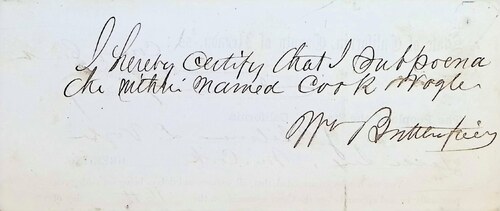 I hereby certify that I Subpoena
the within named Cook Vogle
Wm Butterfield